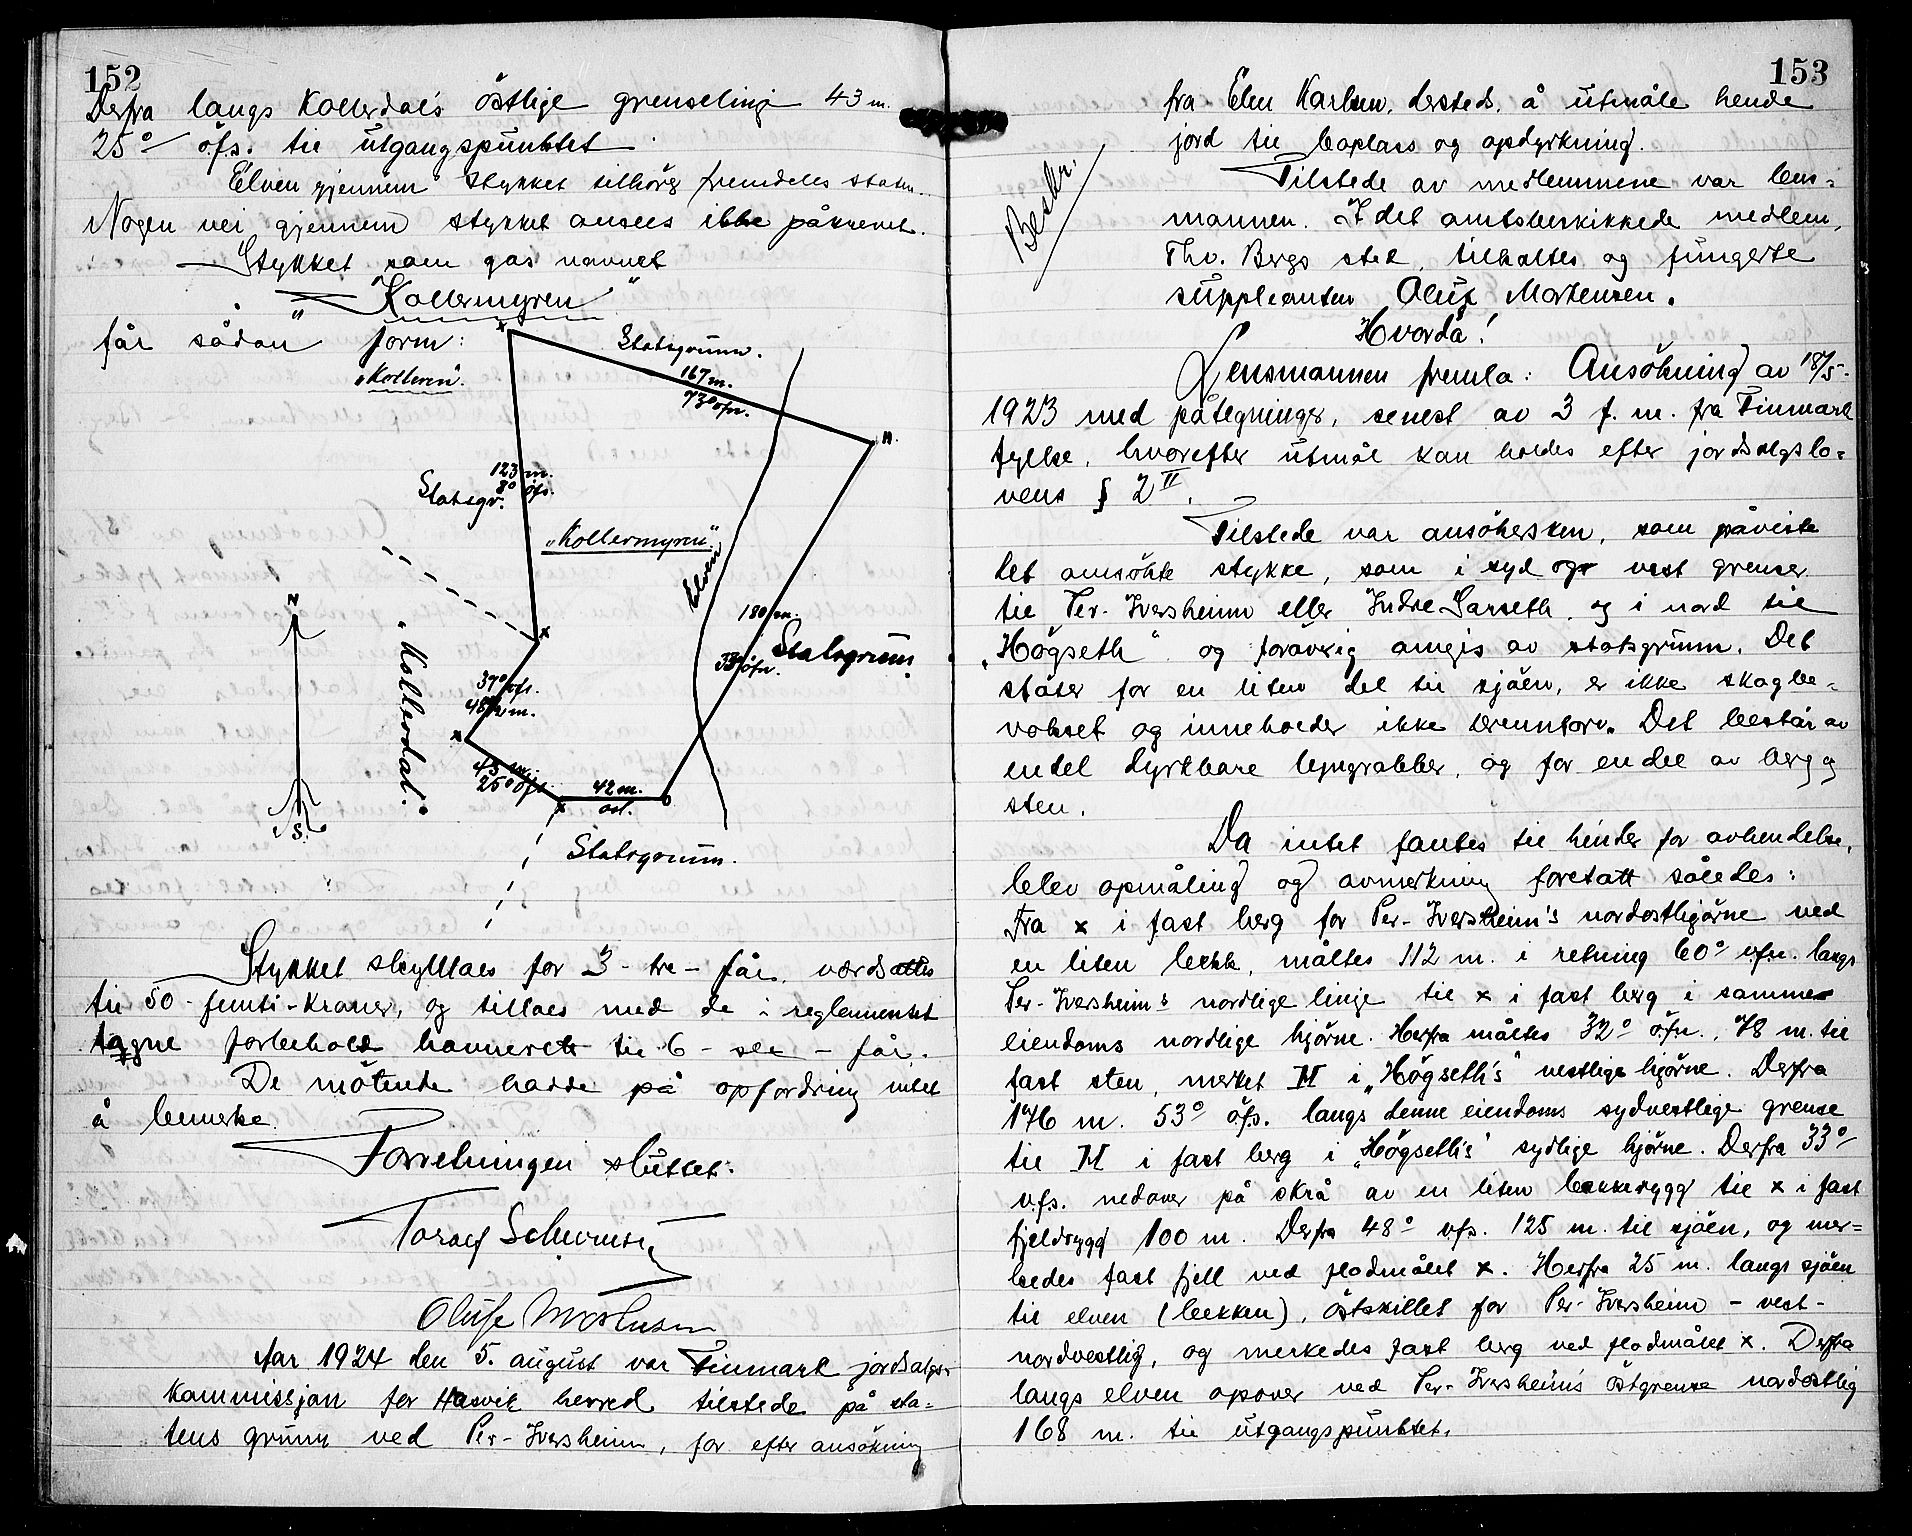 152
Derfra langs Kollerdal's östlige grenselinje 43 m.
25° öfs. til utgangspunktet.
Elven gjennem stykket tilhörer fremdeles staten.
Nogen vei gjennem stykket ansees ikke påkrevet.
Stykket som gas navnet
"Kollermyren"
får sådan form:
Statsgrunn.
"Kolleren".
167 m.
73° öfn.
M.
123 m.
8° öfs.
Statsgr.
"Kollermyren".
Elven
N
180 m.
33° öfn.
Statsgrunn.
"Kollerdal".
37° öfn.
48 1/2 m.
43 m.
25° öfs.
42 m.
öst.
S.
Statsgrunn.
Stykket skyldlaes for 3 - tre - får, værdsattes
til 50 - femti - kroner, og tillaes med de i reglementet
tagne forbehold havneret til 6 - sex - får.
De mötende hadde på opfordring intet
å bemerke.
Forretningen sluttet.
Olufs Mortensen
Aar 1924 den 5. august var Finmark jordsalgs-
kommissjon for Hasvik herred tilstede på sta-
tens grunn ved Per-Iversheim, for efter ansökning
153
fra Elen Karlsen, dersteds, å utmåle hende
jord til boplass og opdyrkning.
Beskr.
Tilstede av medlemmene var lens-
mannen. I det amtsbeskikkede medlem,
Thv. Bergs sted, tilkaltes og fungerte
suppleanten Oluf Mortensen.
Hvorda!
Lensmannen fremla: Ansökning av 18/5-
1923 med påtegninger, senest av 3 f. m. fra Finmark
fylke, hvorefter utmål kan holdes efter jordsalgslo-
vens § 2 II.
Tilstede var ansökersken, som påviste
det ansökte stykke, som i syd og vest grenser
til Per-Iversheim eller Indre Sarseth, og i nord til
"Högseth" og foråvrig omgis av statsgrunn. Det
stöter for en liten del til sjöen, er ikke skogbe-
vokset og inneholder ikke brenntorv. Det består av
endel dyrkbare lyngrabber, og for en del av berg og
sten.
Da intet fantes til hinder for avhendelse,
blev opmåling og avmerkning foretatt således:
Fra x i fast berg for Per-Iversheim's nordosthjörne ved
en liten bekk, måltes 112 m. i retning 60° vfn. langs
Per-Iversheim's nordlige linje til x i fast berg i samme
eiendoms nordlige hjörne. Herfra måltes 32° öfn., 78 m. til
fast sten, merket M i "Högseth's" vestlige hjörne. Derfra
176 m. 53° öfs. langs denne eiendoms sydvestlige grense
til M i fast berg i "Högseth's" sydlige hjörne. Derfra 33°
vfs. nedover på skrå av en liten bakkerygg til x i fast
fjeldrygg 100 m. Derfra 48° vfs. 125 m. til sjöen, og mer-
kedes fast fjell ved flodmålet x. Herfra 25 m. langs sjöen
til elven (bekken), östskillet for Per-Iversheim - vest-
nordvestlig, og merkedes fast berg ved flodmålet x. Derfra
langs elven opover ved Per-Iversheim's östgrense nordostlig
168 m. til utgangspunktet.